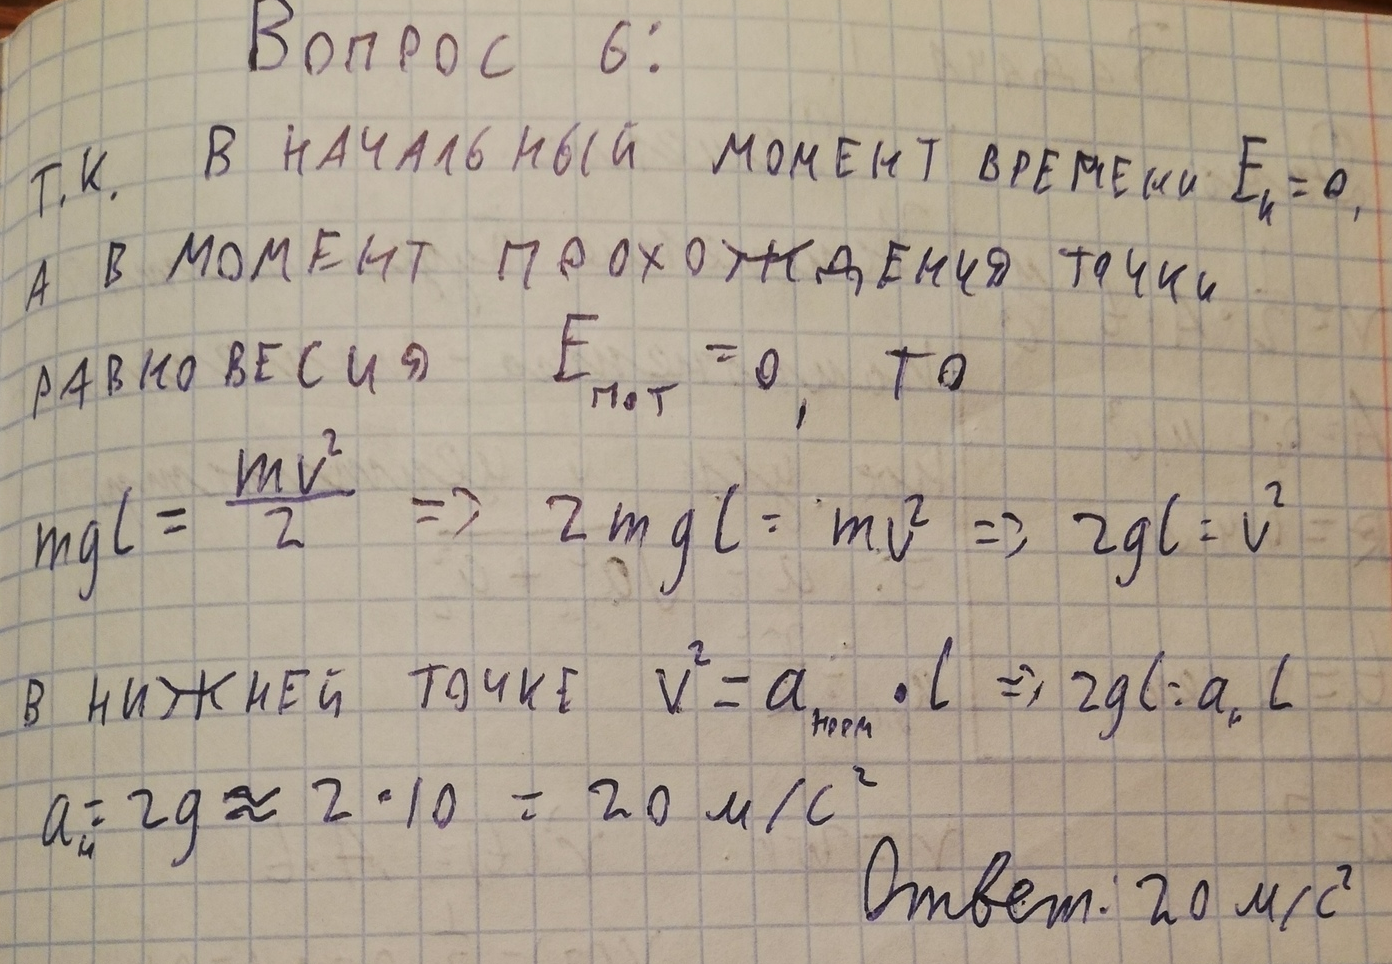 Вопрос 6:
Т.К. В НАЧАЛЬНЫЙ МОМЕНТ ВРЕМЕНИ Eк = 0,
А В МОМЕНТ ПРОХОЖДЕНИЯ ТОЧКИ
РАВНОВЕСИЯ Eпот = 0, ТО
mgl = mv²/2 => 2mgl = mv² => 2gl = v²
В НИЖНЕЙ ТОЧКЕ v² = aнорм · l => 2gl = aн l
aн = 2g ≈ 2 · 10 = 20 м/с²
Ответ: 20 м/с²